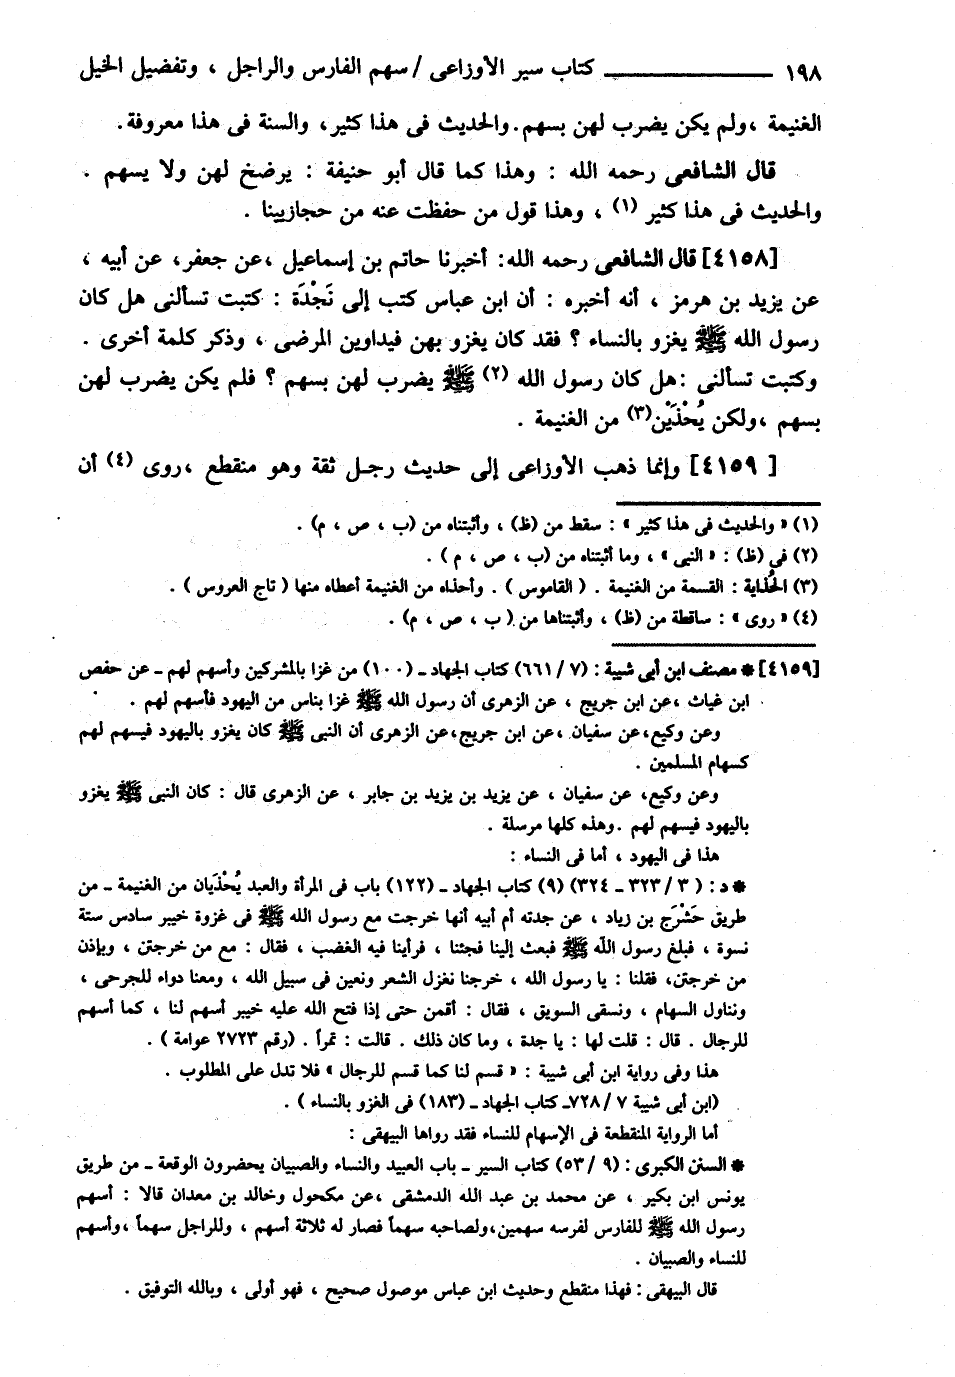 ١٩٨ ــــــــــــــــــ كتاب سير الأوزاعى / سهم الفارس والراجل ، وتفضيل الخيل
الغنيمة ،ولم يكن يضرب لهن بسهم. والحديث فى هذا كثير، والسنة فى هذا معروفة.
قال الشافعى رحمه الله : وهذا كما قال أبو حنيفة : يرضخ لهن ولا يسهم .
والحديث فى هذا كثير (١) ، وهذا قول من حفظت عنه من حجازيينا .
[٤١٥٨] قال الشافعى رحمه الله: أخبرنا حاتم بن إسماعيل ،عن جعفر، عن أبيه ،
عن يزيد بن هرمز ، أنه أخبره : أن ابن عباس كتب إلى نَجْدَة : كتبت تسألنى هل كان
رسول الله ﷺ يغزو بالنساء ؟ فقد كان يغزو بهن فيداوين المرضى ، وذكر كلمة أخرى .
وكتبت تسألنى :هل كان رسول الله (٢) ﷺ يضرب لهن بسهم ؟ فلم يكن يضرب لهن
بسهم ،ولكن يُحْذَيْن(٣) من الغنيمة .
[ ٤١٥٩] وإنما ذهب الأوزاعى إلى حديث رجل ثقة وهو منقطع ،روى (٤) أن
(١) « والحديث فى هذا كثير » : سقط من (ظ) ، وأثبتناه من (ب ، ص ، م) .
(٢) فى (ظ) : « النبى » ، وما أثبتناه من (ب ، ص ، م ) .
(٣) الحُذاية : القسمة من الغنيمة . ( القاموس ) . وأحذاه من الغنيمة أعطاه منها ( تاج العروس ) .
(٤) « روى » : ساقطة من (ظ) ، وأثبتناها من ( ب ، ص ، م) .
[٤١٥٩] * مصنف ابن أبى شيبة : (٧ /٦٦١) كتاب الجهاد ـ (١٠٠) من غزا بالمشركين وأسهم لهم ـ عن حفص
ابن غياث ،عن ابن جريج ، عن الزهرى أن رسول الله ﷺ غزا بناس من اليهود فأسهم لهم .
وعن وكيع،عن سفيان ،عن ابن جريج،عن الزهرى أن النبى ﷺ كان يغزو باليهود فيسهم لهم
كسهام المسلمين .
وعن وكيع، عن سفيان ، عن يزيد بن يزيد بن جابر ، عن الزهرى قال : كان النبى ﷺ يغزو
باليهود فيسهم لهم .وهذه كلها مرسلة .
هذا فى اليهود ، أما فى النساء :
* د : ( ٣ /٣٢٣ ـ ٣٢٤) (٩) كتاب الجهاد ـ (١٢٢) باب فى المرأة والعبد يُحْذَيان من الغنيمة ـ من
طريق حَشْرَج بن زياد ، عن جدته أم أبيه أنها خرجت مع رسول الله ﷺ فى غزوة خيبر سادس ستة
نسوة ، فبلغ رسول الله ﷺ فبعث إلينا فجئنا ، فرأينا فيه الغضب ، فقال : مع من خرجتن ، وبإذن
من خرجتن، فقلنا : يا رسول الله ، خرجنا نغزل الشعر ونعين فى سبيل الله ، ومعنا دواء للجرحى ،
ونناول السهام ، ونسقى السويق ، فقال : أقمن حتى إذا فتح الله عليه خيبر أسهم لنا ، كما أسهم
للرجال . قال : قلت لها : يا جدة ، وما كان ذلك . قالت : تمراً . (رقم ٢٧٢٣ عوامة ) .
هذا وفى رواية ابن أبى شيبة : « قسم لنا كما قسم للرجال » فلا تدل على المطلوب .
(ابن أبى شيبة ٧ /٧٢٨ـ كتاب الجهاد ـ (١٨٣) فى الغزو بالنساء ) .
أما الرواية المنقطعة فى الإسهام للنساء فقد رواها البيهقى :
* السنن الكبرى : (٩ /٥٣) كتاب السير ـ باب العبيد والنساء والصبيان يحضرون الوقعة ـ من طريق
يونس ابن بكير ، عن محمد بن عبد الله الدمشقى ،عن مكحول وخالد بن معدان قالا : أسهم
رسول الله ﷺ للفارس لفرسه سهمين،ولصاحبه سهماً فصار له ثلاثة أسهم ، وللراجل سهماً ،وأسهم
للنساء والصبيان .
قال البيهقى : فهذا منقطع وحديث ابن عباس موصول صحيح ، فهو أولى ، وبالله التوفيق .